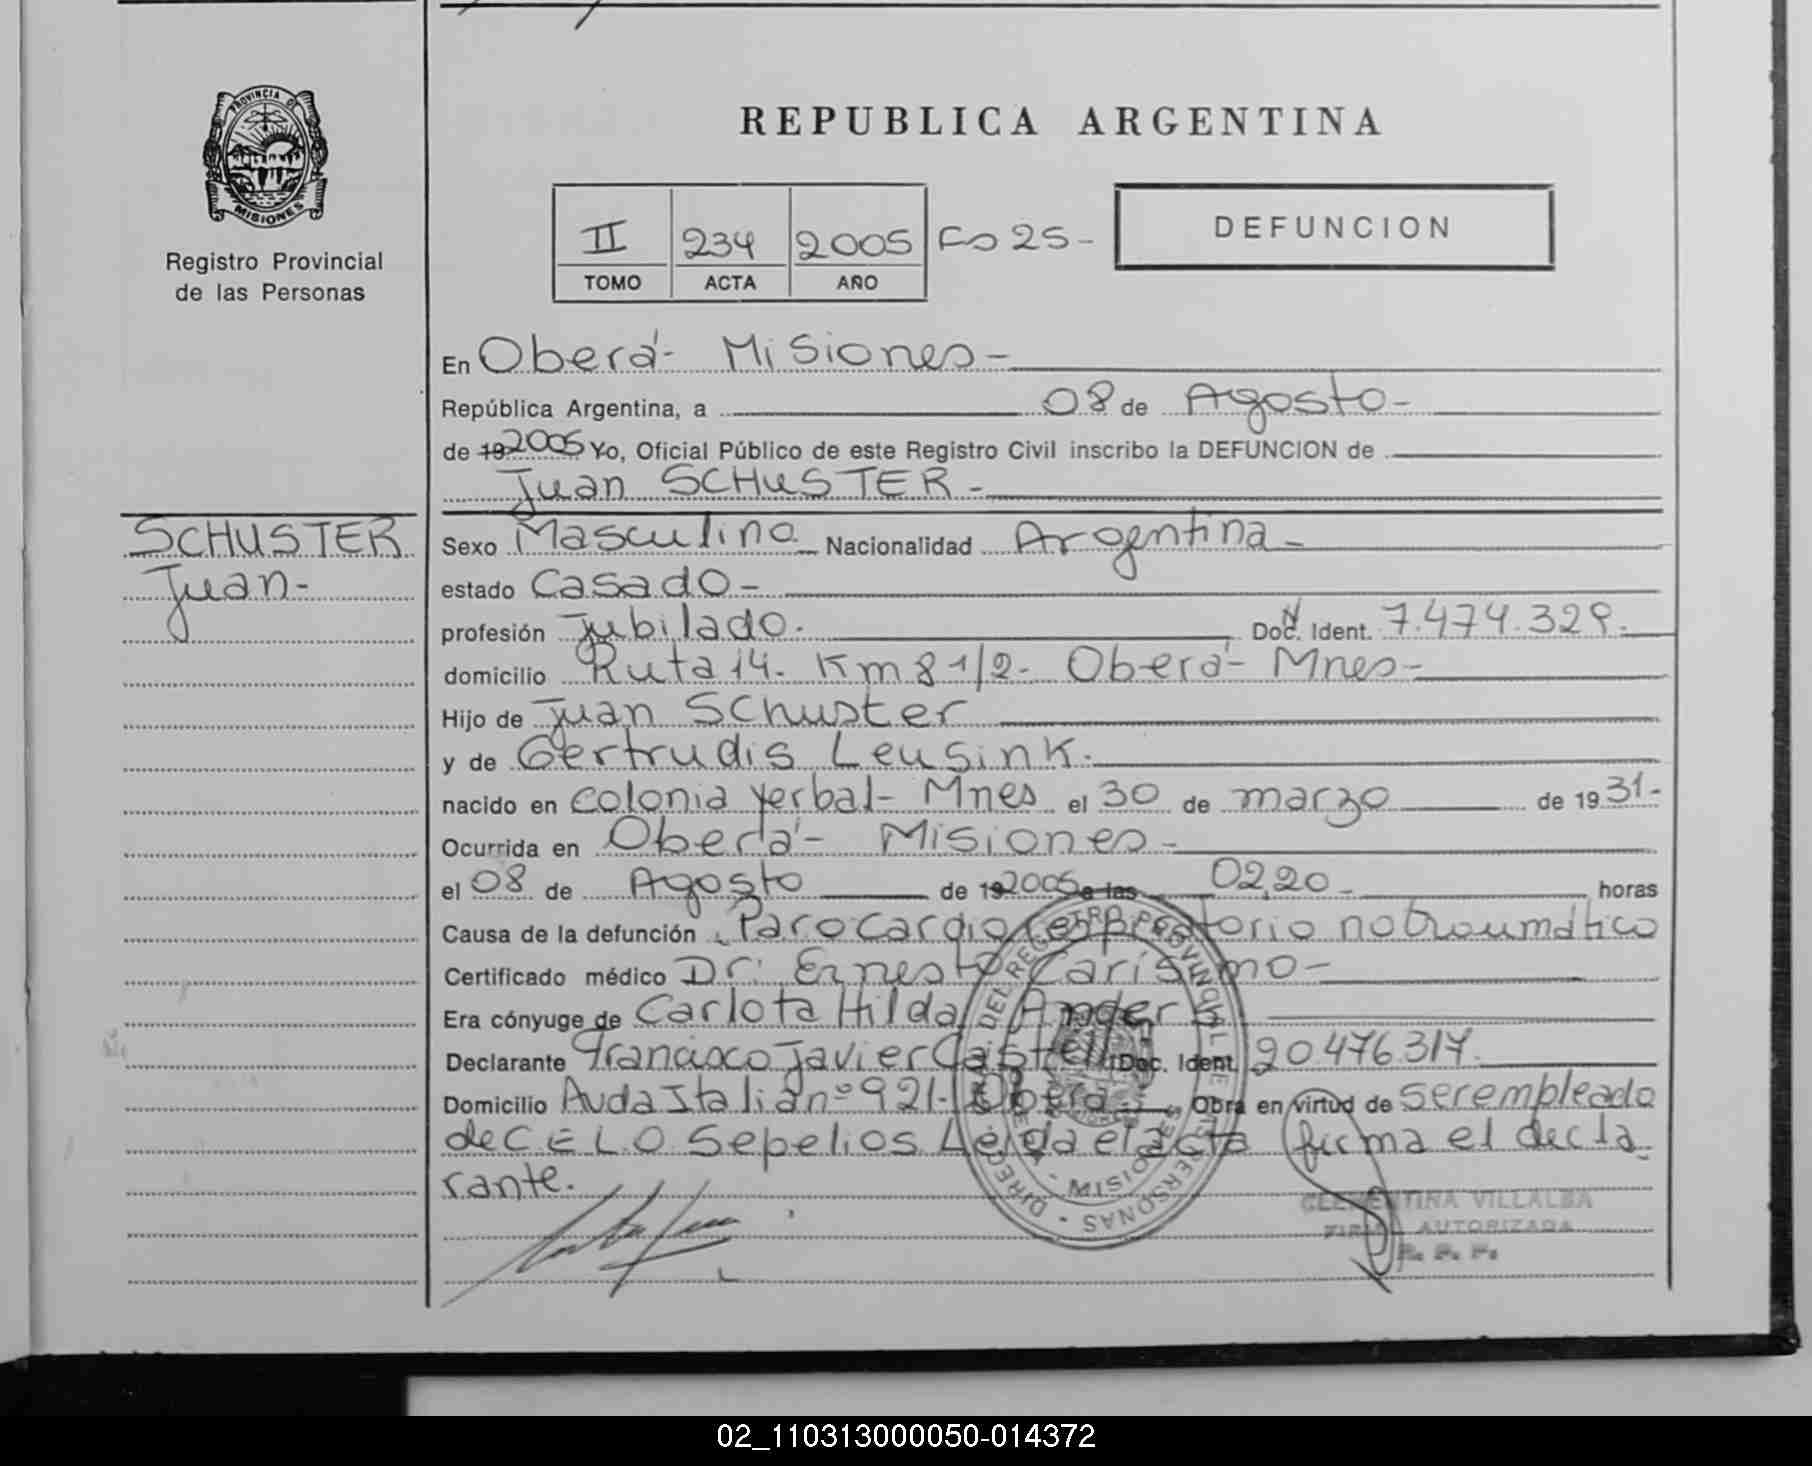 PROVINCIA DE
MISIONES
Registro Provincial
de las Personas
SCHUSTER
Juan-
REPUBLICA ARGENTINA
II 234 2005 Fo 25-
TOMO ACTA AÑO
DEFUNCION
En Oberá- Misiones-
República Argentina, a 08 de Agosto-
de 19 2005 Yo, Oficial Público de este Registro Civil inscribo la DEFUNCION de
Juan SCHUSTER-
Sexo Masculino Nacionalidad Argentina-
estado Casado-
profesión Jubilado. Doc. Ident. 7.474.329.
domicilio Ruta 14- Km 8 1/2- Oberá- Mnes-
Hijo de Juan Schuster
y de Gertrudis Leusink.
nacido en Colonia Yerbal- Mnes el 30 de marzo de 1931-
Ocurrida en Oberá- Misiones-
el 08 de Agosto de 19 2005 a las 02,20- horas
Causa de la defunción Paro cardio respiratorio no traumático
Certificado médico Dr. Ernesto Carísimo-
Era cónyuge de Carlota Hilda Ander
Declarante Francisco Javier Castell Doc. Ident. 20.476.317.
Domicilio Avda Italia nº 921- Oberá Obra en virtud de ser empleado
de C.E.L.O. Sepelios Leída el acta firma el decla
rante.
DIREC. DEL REGISTRO PROVINCIAL DE LAS PERSONAS - MISIONES -
CLEMENTINA VILLALBA
FIRMA AUTORIZADA
02_110313000050-014372